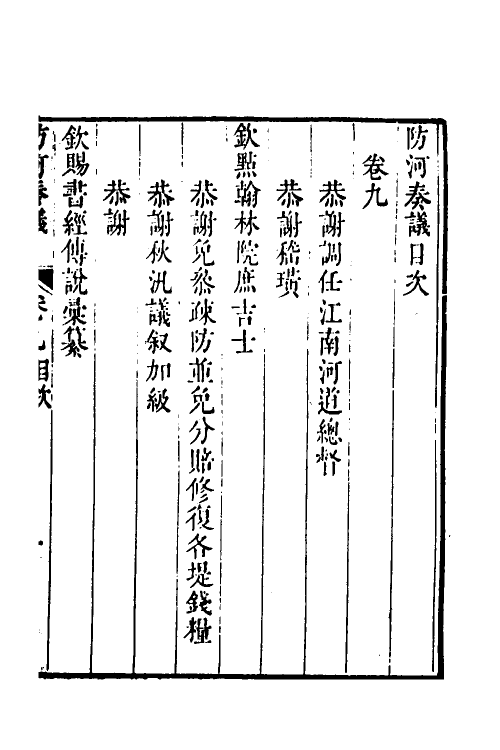 防河奏議目次
卷九
恭謝調任江南河道總督
恭謝嵇璜
欽點翰林院庶吉士
恭謝免叅疎防並免分賠修復各堤錢糧
恭謝秋汛議叙加級
恭謝
欽賜書經傳說彙纂
防河奏議
卷九目次